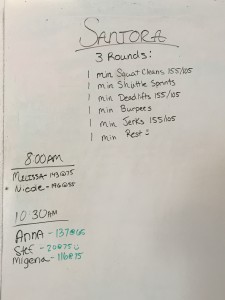 SANTORA
3 Rounds:
1 min Squat Cleans 155/105
1 min Shuttle Sprints
1 min Deadlifts 155/105
1 min Burpees
1 min Jerks 155/105
1 min Rest
8:00AM
MELISSA - 143@75
Nicole - 196@55
10:30AM
ANNA - 137@65
Stef - 80@75
Migena - 116@75